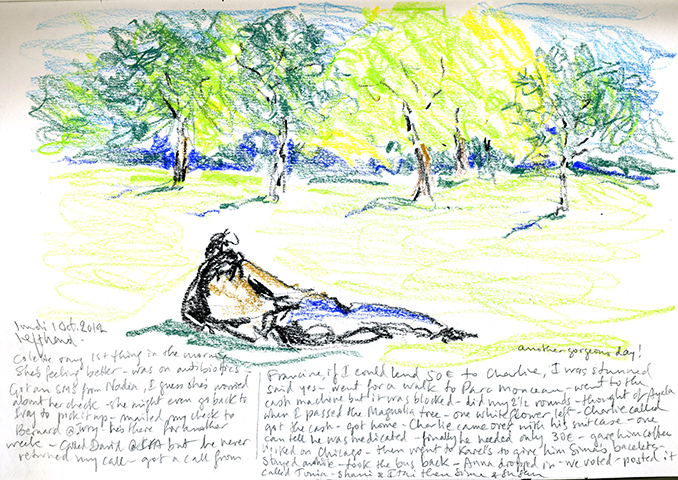 lundi 1 Oct. 2012
left hand.
another gorgeous day!
Colette rang 1st thing in the morning
She's feeling better - was on antibiotics -
Got an SMS from Nadia, I guess she's worried
about her check - she might even go back to
Ivry to pick it up - mailed my check to
Bernard @ Ivry - he's there for another
week - Called David @ but he never
returned my call - got a call from
Francine, if I could lend 50€ to Charlie, I was stunned
said yes - went for a walk to Parc Monceau - went to the
cash machine but it was blocked - did my 2½ rounds - thought of Ayala
when I passed the Magnolia tree - one white flower left - Charlie called
got the cash - got home - Charlie came over with his suitcase - one
can tell he was medicated - finally he needed only 30€ - gave him coffee
worked on Chicago - then went to Karel's to give him bracelet -
stayed awhile - took the bus back - Anna dropped in - we voted - posted it
called - then &